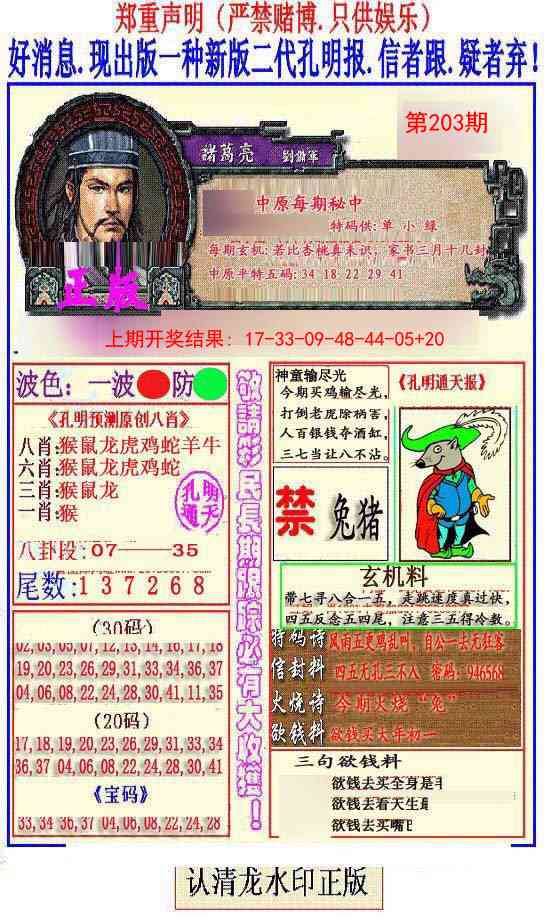 郑重声明（严禁赌博.只供娱乐）
好消息.现出版一种新版二代孔明报.信者跟.疑者弃！
第203期
諸葛亮 劉備軍
中原每期秘中
特码供:单 小 緑
每期玄机:若比杏桃真未识；家书三月十几封
中原平特五码:34 18 22 29 41
正版
上期开奖结果：17-33-09-48-44-05+20
波色：一波 防
《孔明预测原创八肖》
八肖:猴鼠龙虎鸡蛇羊牛
六肖:猴鼠龙虎鸡蛇
三肖:猴鼠龙
一肖:猴
孔明
通天
八卦段:07——35
尾数:137268
(30码)
02,03,05,07,12,13,14,16,17,18
19,20,23,26,29,31,33,34,36,37
04,06,08,22,24,28,30,41,11,35
(20码)
17,18,19,20,23,26,29,31,33,34
36,37 04,06,08,22,24,28,30,41
《宝码》
33,34 36,37 04,06,08,22,24,28
敬請彩民長期跟踪必有大收獲！
神童输尽光
今期买鸡输尽光,
打倒老虎除祸害,
人百银钱夺酒缸,
三七当让八不沾。
《孔明通天报》
禁 兔猪
玄机料
带七寻八合一五，走跳速度真过快,
四五反念五四尾，注意三五得冷数。
特码诗 风雨五更鸡乱叫，自公一去无狂客
信封料 四五无孔三不入 密码：946568
火烧诗 今期火烧“兔”
欲钱料 欲钱买大年初一
三句欲钱料
欲钱去买全身是
欲钱去看天生
欲钱去买嘴
认清龙水印正版